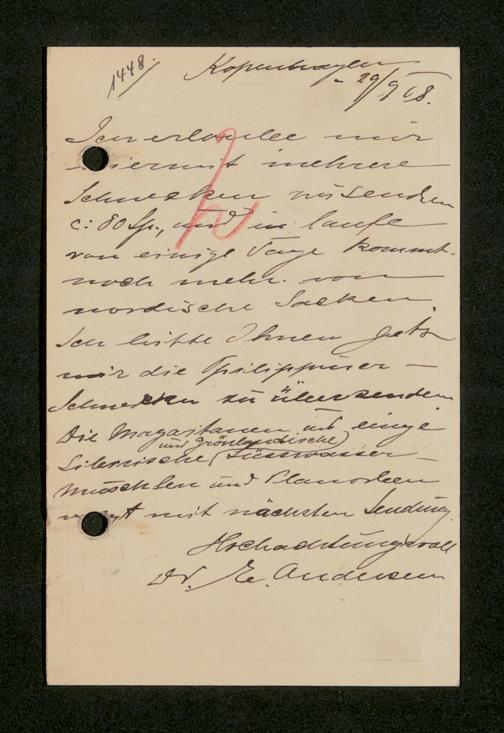 1448.
Kopenhagen
29/9 68.
Ich erlaube mir
hiermit mehrere
Schnecken zusenden
c: 80 Sp., und in laufe
von einige Tage kommt
noch mehr von
nordische Sacken
Ich bitte Ihnen jetz
mir die Philippiner-
Schnecken zu übersenden
Die Magaritanen und einige
und Grönlandische
Siberische Süsswasser-
muschlen und Planorben
mit nächsten Sendung.
Hochachtungsvoll
Dr. E. Andersen